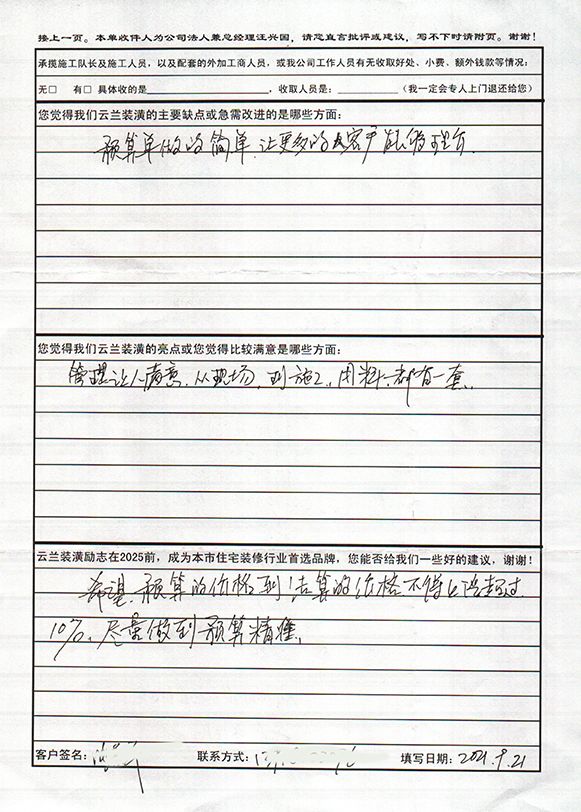 接上一页。本单收件人为公司法人兼总经理汪兴国，请您直言批评或建议，写不下时请附页。谢谢！
承揽施工队长及施工人员，以及配套的外加工商人员，或我公司工作人员有无收取好处、小费、额外钱款等情况：
无□ 有□ 具体收的是____________，收取人员是：________（我一定会专人上门退还给您）
您觉得我们云兰装潢的主要缺点或急需改进的是哪些方面：
预算单做的简单，让更多的客户能够理会
您觉得我们云兰装潢的亮点或您觉得比较满意是哪些方面：
管理让人满意，从现场，到施工，用料，都有一套。
云兰装潢励志在2025前，成为本市住宅装修行业首选品牌，您能否给我们一些好的建议，谢谢！
希望预算的价格到结算的价格不得上浮超过
10%。尽量做到预算精准。
客户签名： 联系方式： 填写日期：2021.9.21